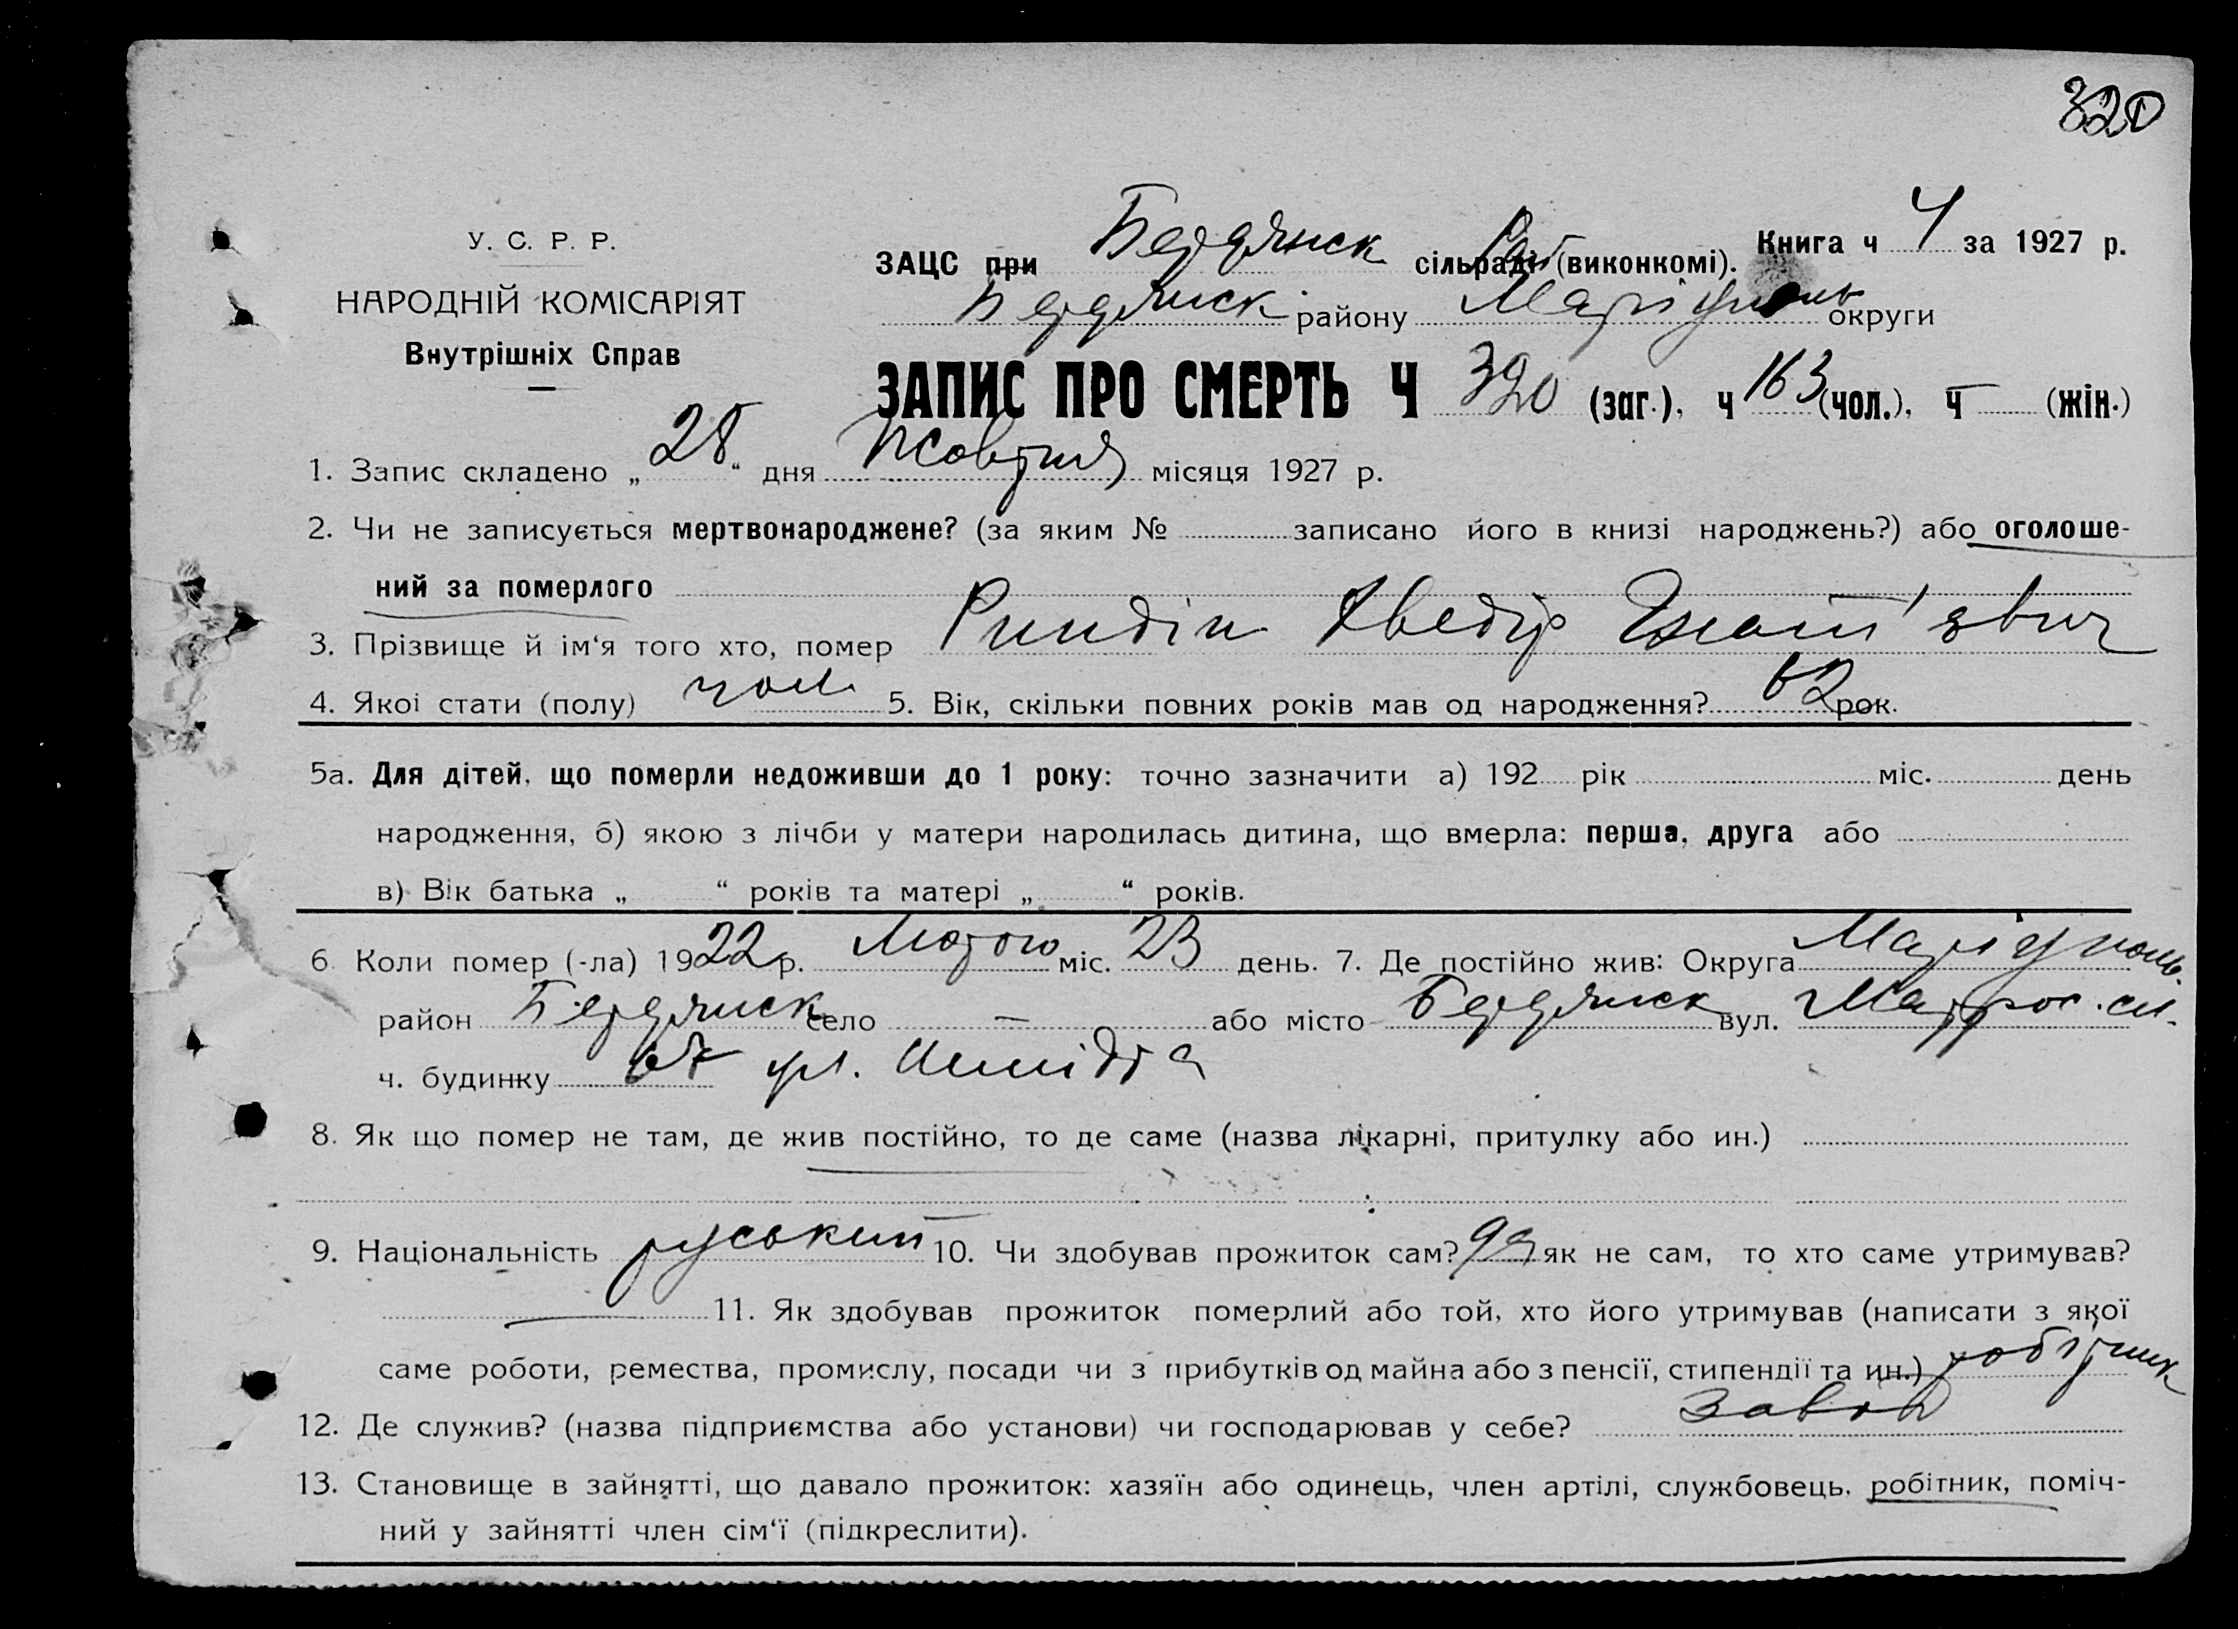 320
У. С. Р. Р.
НАРОДНІЙ КОМІСАРІЯТ
Внутрішніх Справ
ЗАЦС при Бердянск сільраді (виконкомі). Книга ч 4 за 1927 р.
Бердянск району Маріуполь округи
ЗАПИС ПРО СМЕРТЬ Ч 320 (заг.), ч 163 (чол.), ч — (жін.)
1. Запис складено „28“ дня Жовтня місяця 1927 р.
2. Чи не записується мертвонароджене? (за яким № записано його в книзі народжень?) або оголоше-
ний за померлого
3. Прізвище й ім‘я того хто, помер Рындін Хведір
4. Якої стати (полу) чол. 5. Вік, скільки повних років мав од народження? 62 рок.
5а. Для дітей, що померли недоживши до 1 року: точно зазначити а) 192 рік міс. день
народження, б) якою з лічби у матери народилась дитина, що вмерла: перша, друга або
в) Вік батька „ “ років та матері „ “ років.
6. Коли помер (-ла) 1922 р. Лютого міс. 23 день. 7. Де постійно жив: Округа Маріуполь.
район Бердянск село — або місто Бердянск вул. Матрос. сл.
ч. будинку ул. Шмідта
8. Як що помер не там, де жив постійно, то де саме (назва лікарні, притулку або ин.)
9. Національність руський 10. Чи здобував прожиток сам? да як не сам, то хто саме утримував?
— 11. Як здобував прожиток померлий або той, хто його утримував (написати з якої
саме роботи, ремества, промислу, посади чи з прибутків од майна або з пенсії, стипендії та ин.) робітник
12. Де служив? (назва підприємства або установи) чи господарював у себе? завод
13. Становище в зайнятті, що давало прожиток: хазяїн або одинець, член артілі, службовець, робітник, поміч-
ний у зайнятті член сім‘ї (підкреслити).